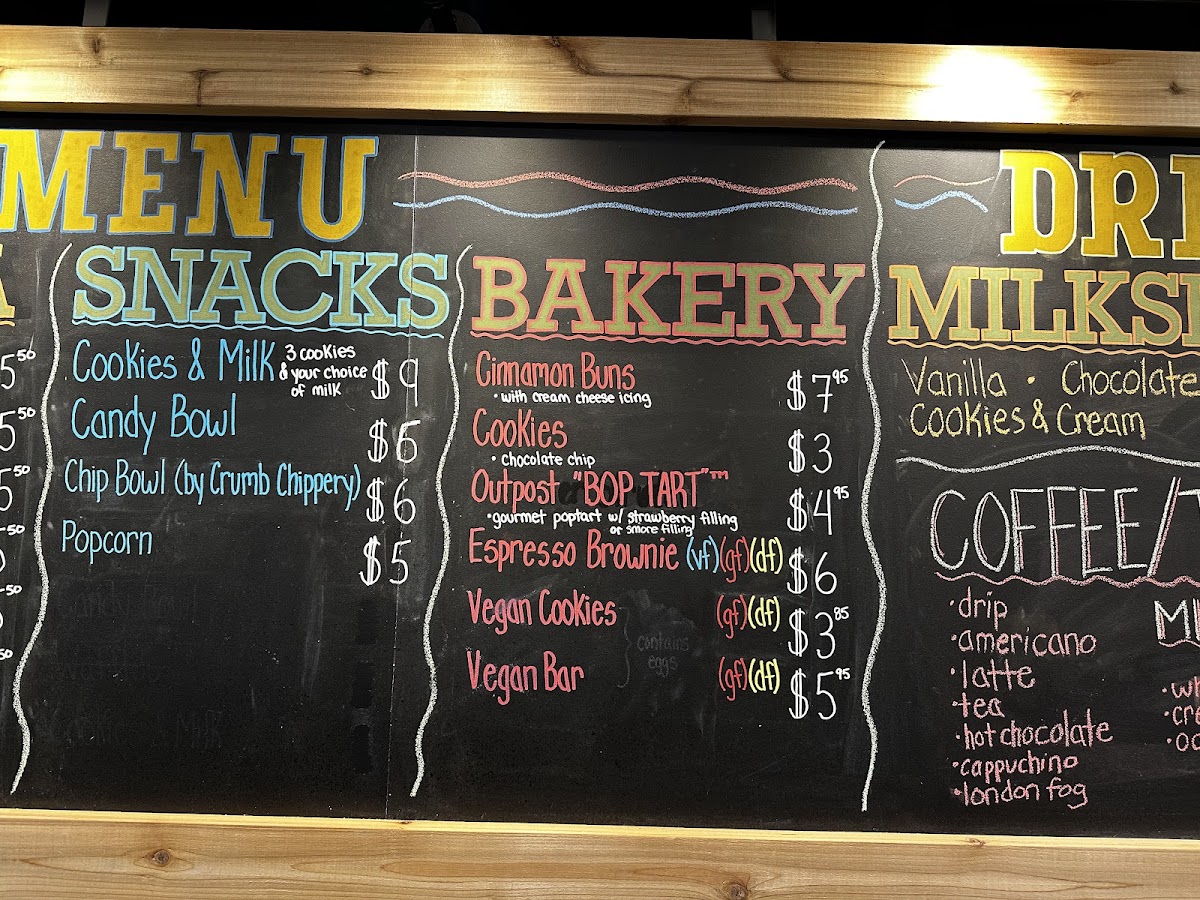 MENU
5⁵⁰
5⁵⁰
5⁵⁰
SNACKS
Cookies & Milk 3 cookies & your choice of milk $9
Candy Bowl $6
Chip Bowl (by Crumb Chippery) $6
Popcorn $5
BAKERY
Cinnamon Buns $7⁹⁵
• with cream cheese icing
Cookies $3
• chocolate chip
Outpost "BOP TART"™ $4⁹⁵
• gourmet poptart w/ strawberry filling
or smore filling
Espresso Brownie (vf)(gf)(df) $6
Vegan Cookies (gf)(df) $3⁸⁵
contains
eggs
Vegan Bar (gf)(df) $5⁹⁵
DRI
MILKS
Vanilla • Chocolate
Cookies & Cream
COFFEE/T
• drip
• americano
• latte
• tea
• hot chocolate
• cappuchino
• london fog
MI
• wh
• cre